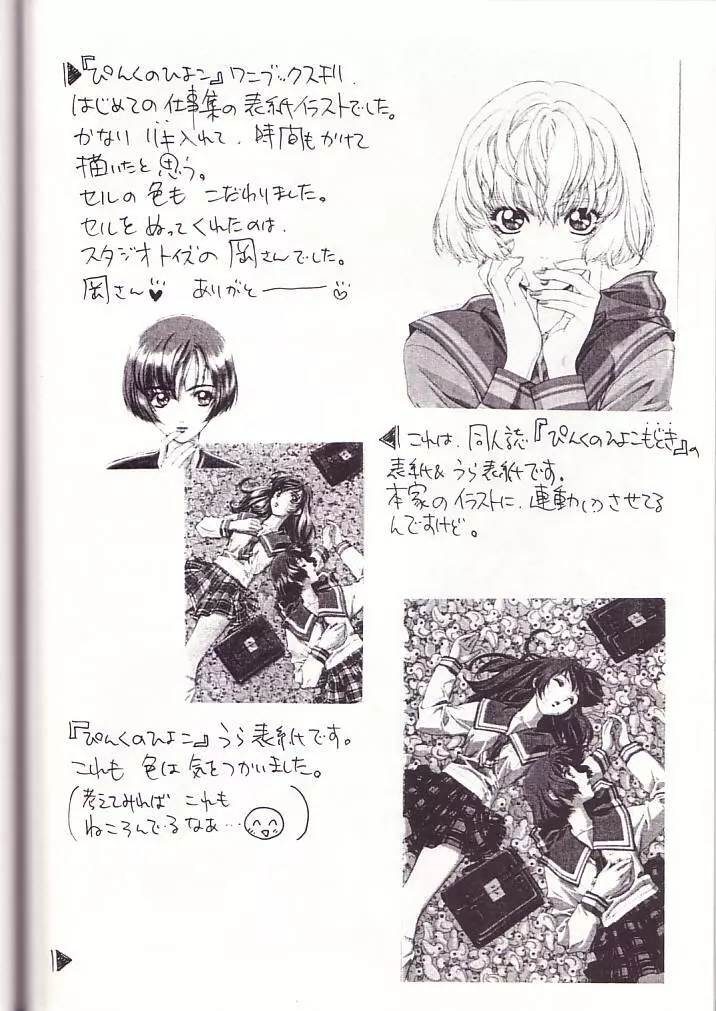 『ぴんくのひよこ』ワニブックス刊.
はじめての仕事集の表紙イラストでした。
かなり リキ入れて、時間もかけて
描いたと思う。
セルの色も こだわりました。
セルをぬってくれたのは、
スタジオトイズの岡さんでした。
岡さん♥ ありがとーーー♡
これは、同人誌『ぴんくのひよこもどき』の
表紙&うら表紙です。
本家のイラストに、連動(?)させてる
んですけど。
『ぴんくのひよこ』うら表紙です。
これも 色は気をつかいました。
(考えてみれば これも
ねころんでるなぁ…)